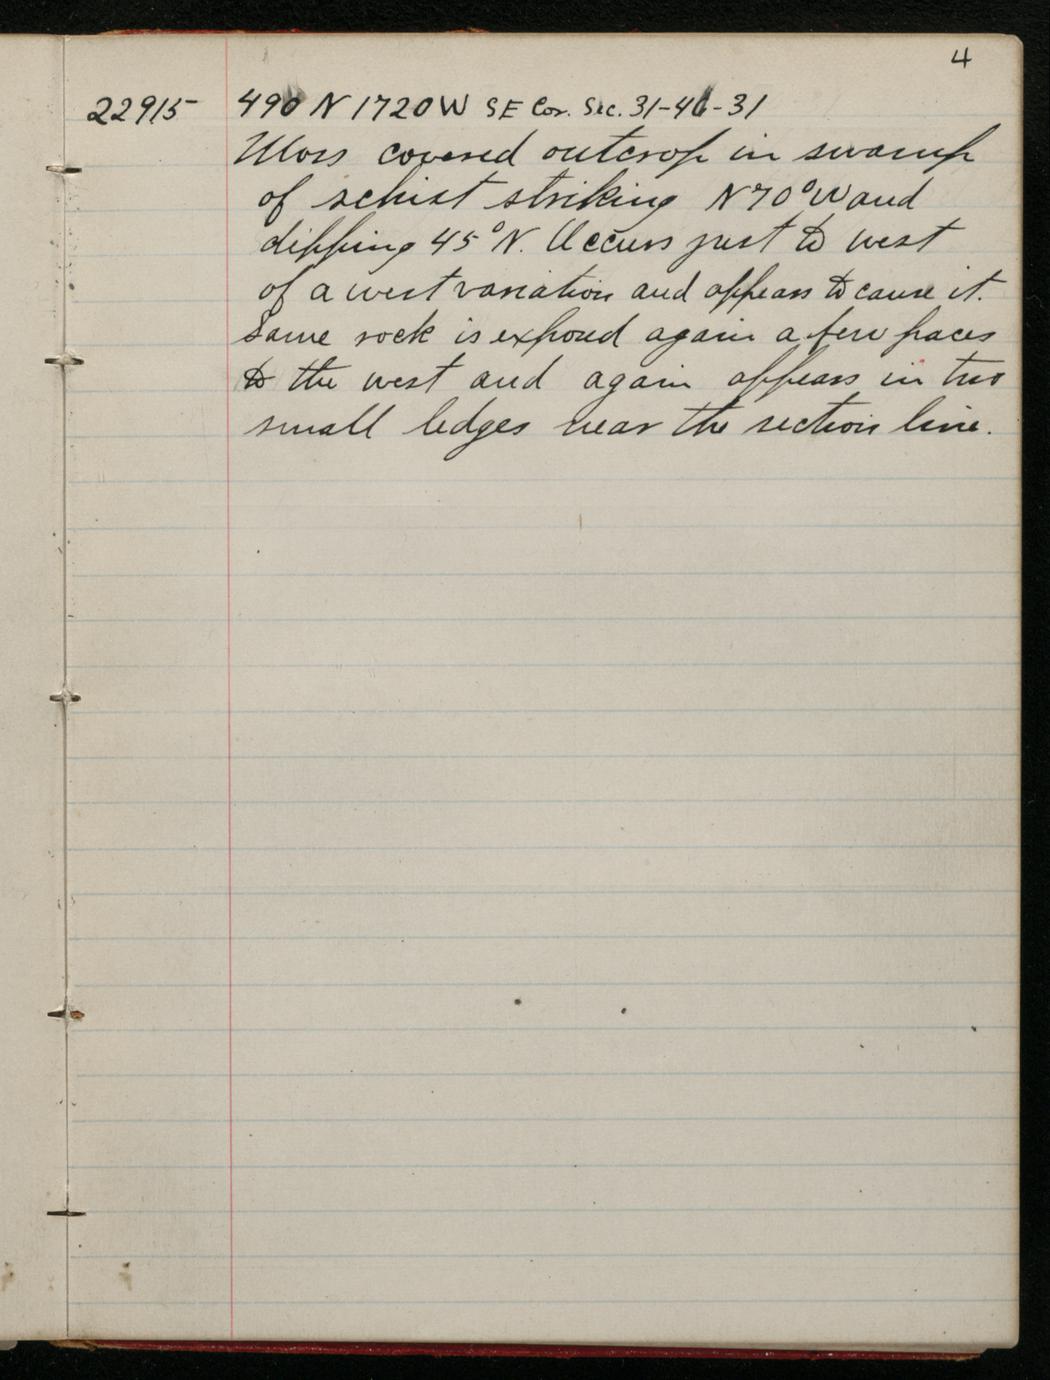 4
22915 490 N 1720 W SE Cor. Sec. 31-46-31
Moss covered outcrop in swamp
of schist striking N 70° W and
dipping 45° N. Occurs just to west
of a west variation and appears to cause it.
Same rock is exposed again a few paces
to the west and again appears in two
small ledges near the section line.